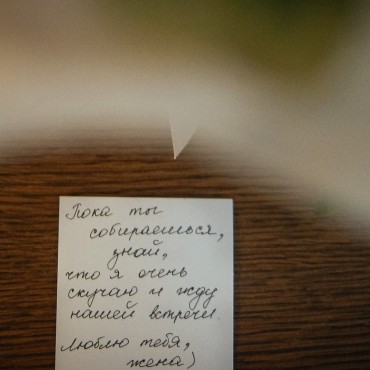 Пока ты
собираешься,
знай,
что я очень
скучаю и жду
нашей встречи.
Люблю тебя,
жена)